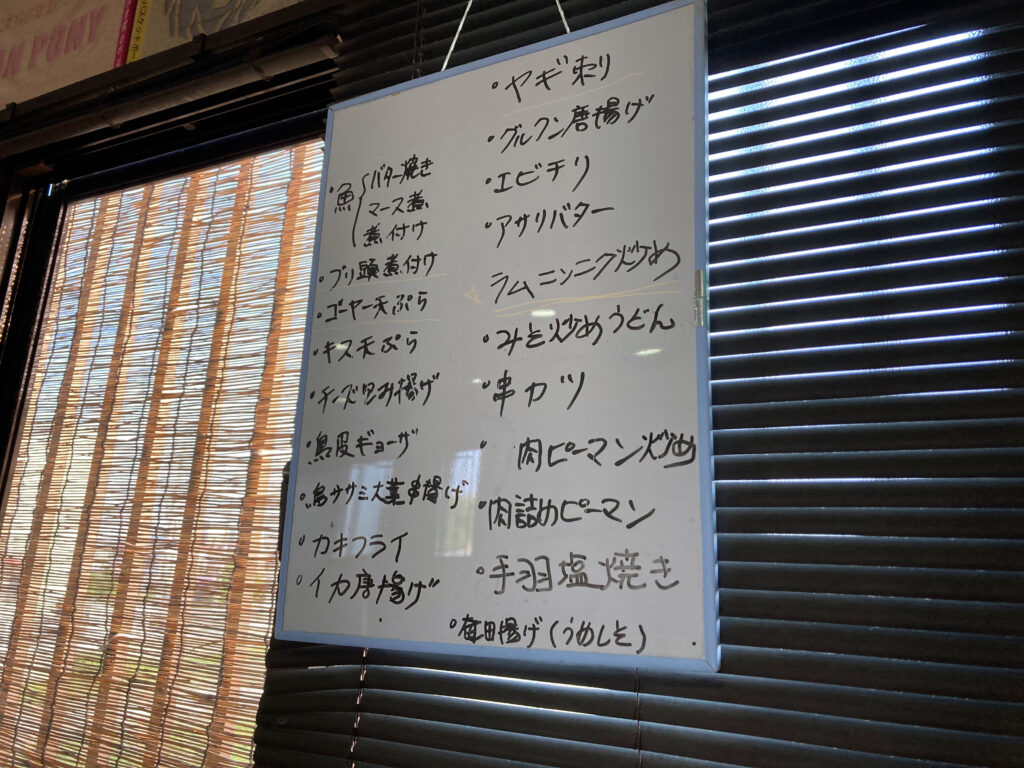 ON PONY
バスケットボ
・ヤギ刺り
・グルクン唐揚げ
・エビチリ
・アサリバター
ラムニンニク炒め
・みそ炒めうどん
・串カツ
・肉ピーマン炒め
・肉詰めピーマン
・手羽塩焼き
・梅田揚げ(うめしそ)
・魚
バター焼き
マース煮
煮付け
・ブリ頭煮付け
・ゴーヤー天ぷら
・キス天ぷら
・チーズ包み揚げ
・鳥皮ギョーザ
・鳥ササミ大葉串揚げ
・カキフライ
・イカ唐揚げ